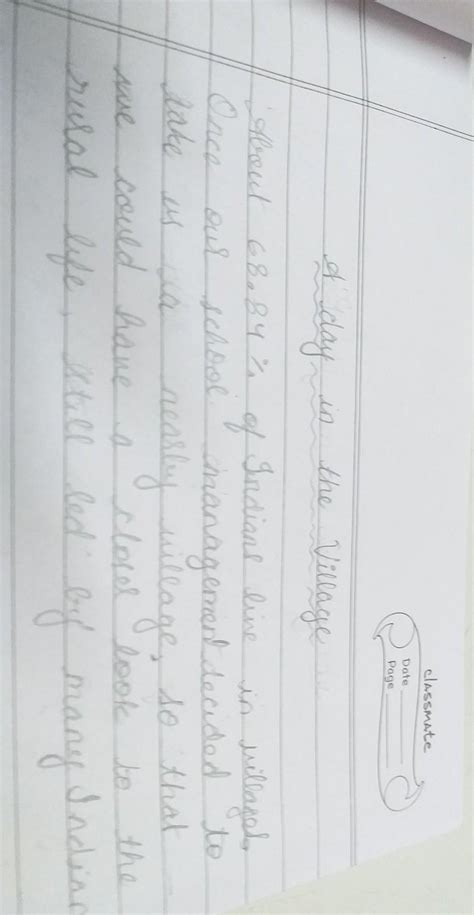 classmate
Date
Page
A day in the Village
About 68.84% of Indians live in villages.
Once our school management decided to
take us a nearby village, so that
we could have a close look to the
rural life, still led by many Indian